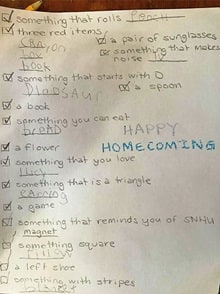 something that rolls Pencil
three red items
Crayon
a pair of sunglasses
something that makes
noise
book
something that starts with D
Dinosaur
a spoon
a book
something you can eat
bread
HAPPY
a flower
HOMECOMING
something that you love
something that is a triangle
earring
a game
something that reminds you of SNHU
magnet
something square
a left shoe
something with stripes